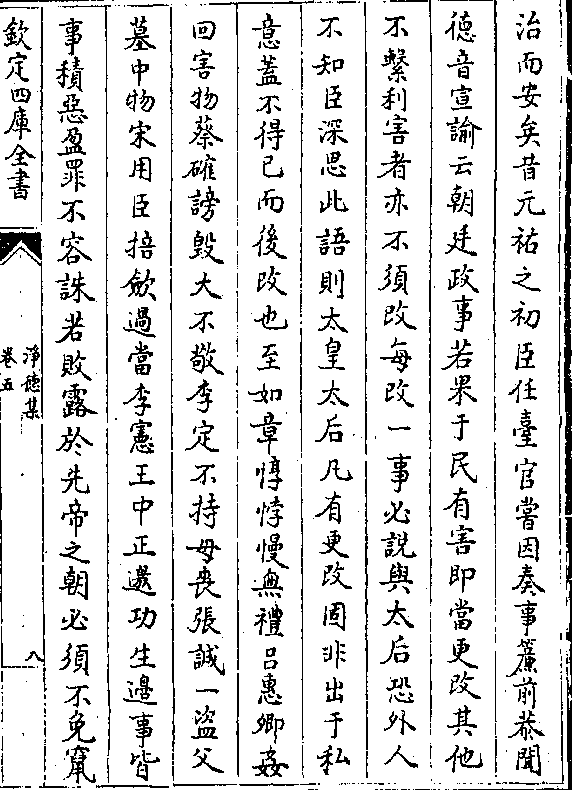 治而安矣昔元祐之初臣任臺官嘗因奏事簾前恭聞
德音宣諭云朝廷政事若果于民有害即當更改其他
不繫利害者亦不須改每改一事必說與太后恐外人
不知臣深思此語則太皇太后凡有更改固非出于私
意蓋不得已而後改也至如章惇悖慢無禮呂惠卿姦
回害物蔡確謗毀大不敬李定不持母喪張誠一盜父
墓中物宋用臣掊斂過當李憲王中正邀功生邊事皆
事積惡盈罪不容誅若敗露於先帝之朝必須不免竄
欽定四庫全書
淨德集
卷五
八